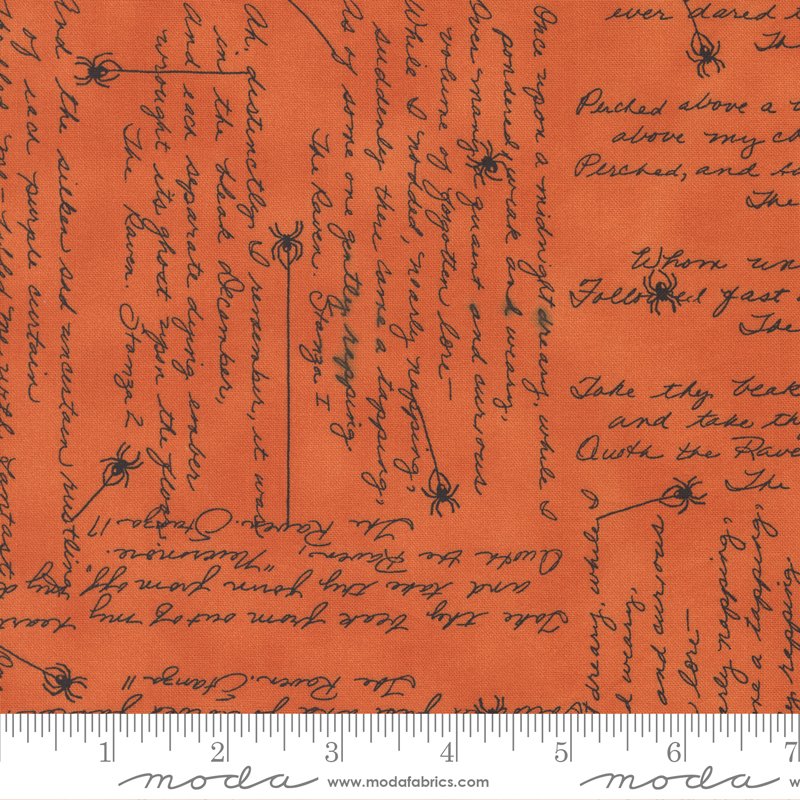 ever dared t
The
Perched above a
above my ch
Perched, and
The
Whom un
Followed fast
The
Take thy beak
and take th
Quoth the Rave
The
Once upon a midnight dreary, while I
pondered, weak and weary,
Over many a quaint and curious
volume of forgotten lore—
While I nodded, nearly napping,
suddenly there came a tapping,
As of some one gently rapping
The Raven. Stanza 1
Ah, distinctly I remember, it was
in the bleak December,
And each separate dying ember
wrought its ghost upon the floor.
The Raven. Stanza 2
And the silken sad uncertain rustling
of each purple curtain
me—filled me with fantast
Take thy beak from out of my heart
and take thy form from off my d
Quoth the Raven, "Nevermore."
The Raven. Stanza 17
The Raven. Stanza 11
dreary, while I
weary,
and curious
lore—
napping,
a tapping,
rapping
1 2 3 4 5 6 7
moda www.modafabrics.com moda w